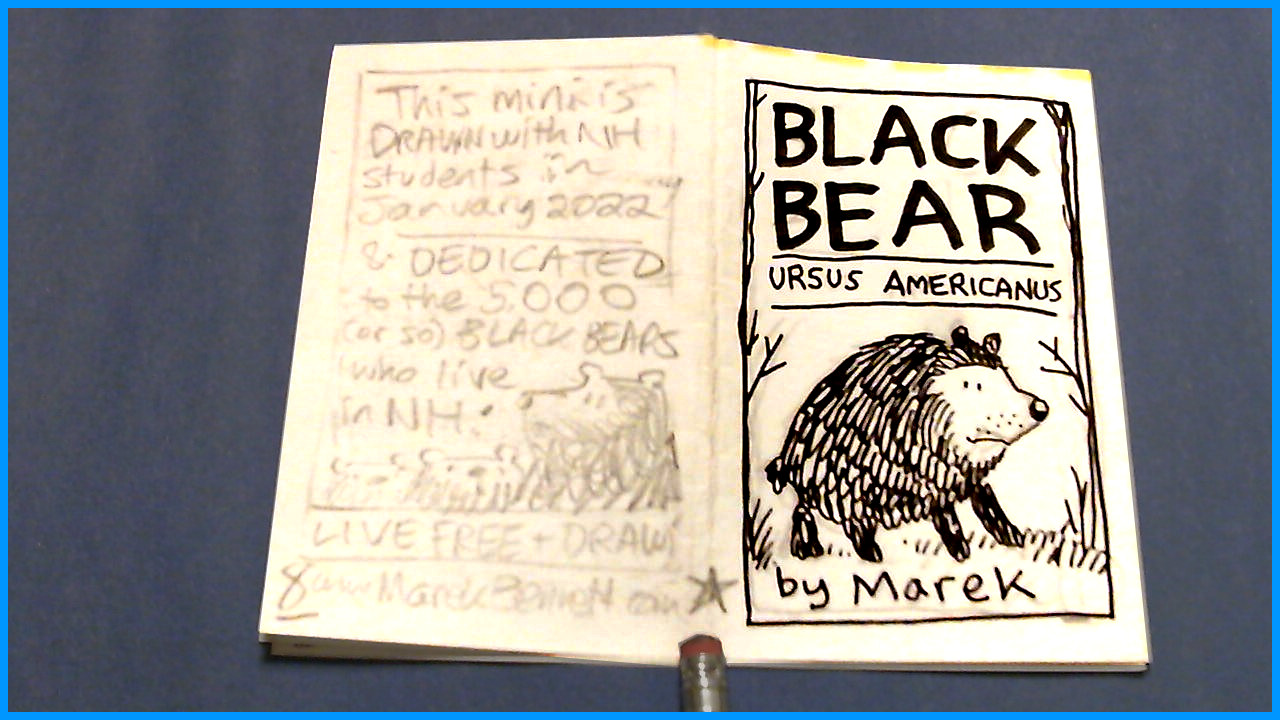 This mini is
DRAWN with NH
students in
January 2022
& DEDICATED
to the 5,000
(or so) BLACK BEARS
who live
in NH.
LIVE FREE + DRAW!
8 www.MarekBennett.com
BLACK
BEAR
URSUS AMERICANUS
by Marek